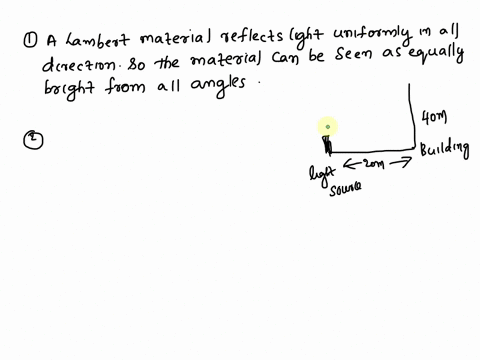 ① A Lambert material reflects light uniformly in all
direction. So the material can be seen as equally
bright from all angles.
②
40m
Building
20m
light
source